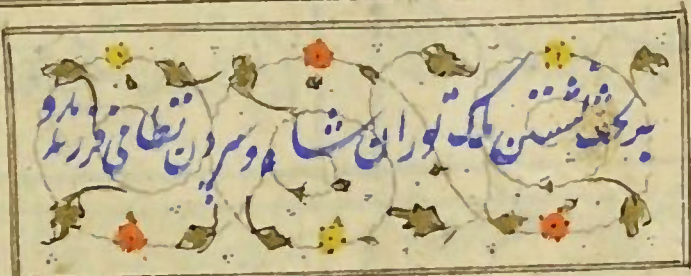 بر تخت نشستن ملک توران شاه و سپردن نظامی فرزند